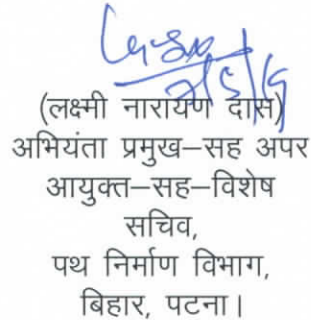 (लक्ष्मी नारायण दास)
अभियंता प्रमुख–सह अपर
आयुक्त–सह–विशेष
सचिव,
पथ निर्माण विभाग,
बिहार, पटना।